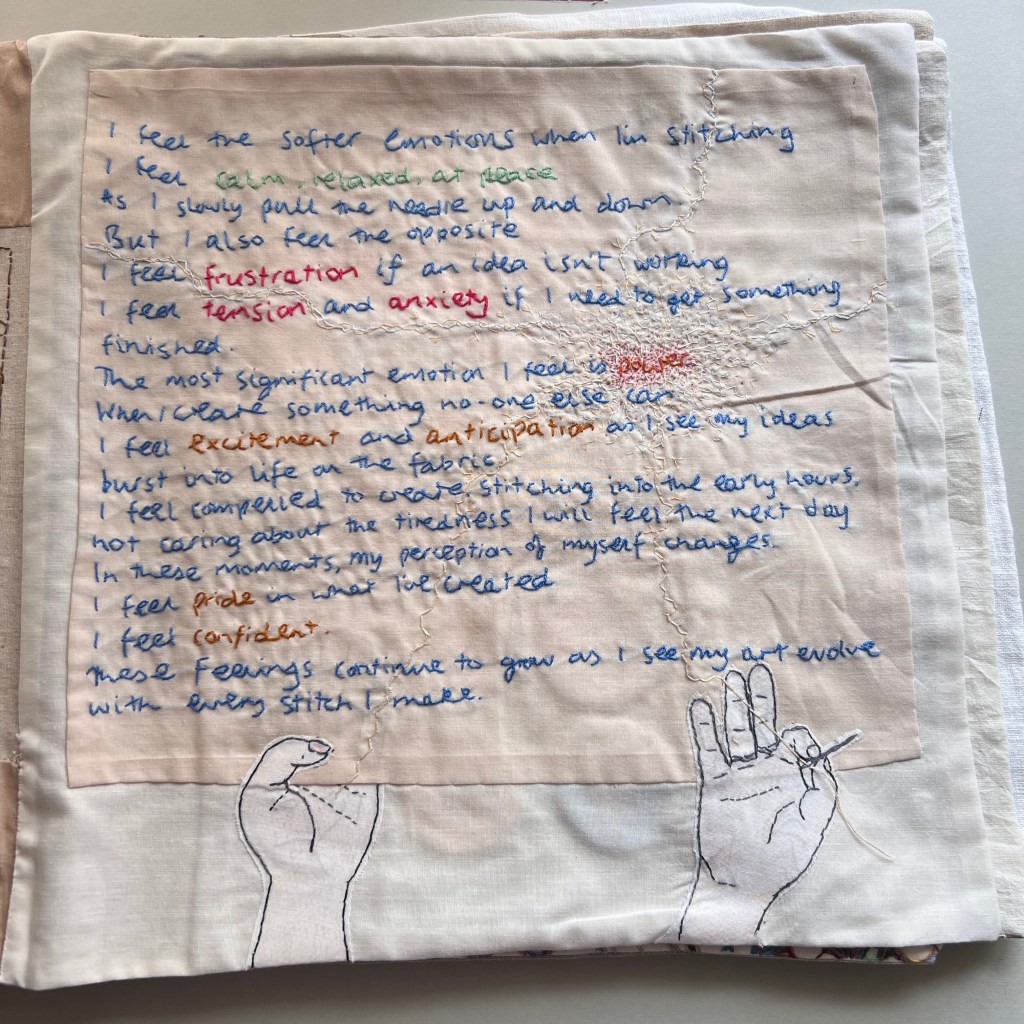 I feel the softer emotions when I'm stitching
I feel calm, relaxed, at peace
As I slowly pull the needle up and down.
But I also feel the opposite
I feel frustration if an idea isn't working
I feel tension and anxiety if I need to get something
finished.
The most significant emotion I feel is power
When I create something no-one else can
I feel excitement and anticipation as I see my ideas
burst into life on the fabric
I feel compelled to create, stitching into the early hours,
not caring about the tiredness I will feel the next day
In these moments, my perception of myself changes.
I feel pride in what I've created
I feel confident.
These feelings continue to grow as I see my art evolve
with every stitch I make.